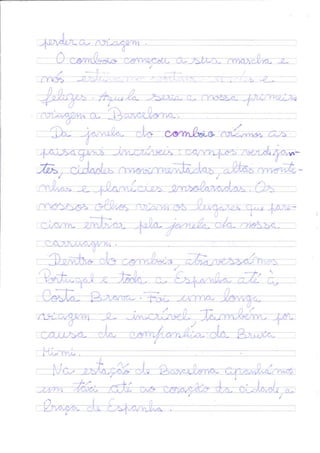 perder a viagem.
O comboio começou a sua marcha e
nós estávamos e
felizes. Aquela seria a nossa primeira
viagem a Barcelona.
Da janela do comboio víamos as
paisagens incríveis: campos verdejan-
tes, cidades movimentadas, altas monta-
nhas e planícies ensolaradas. Os
nossos olhos viam os lugares que pare-
ciam entrar pela janela da nossa
carruagem.
Dentro do comboio, atravessámos
Portugal e toda a Espanha até à
Costa Brava. Foi uma longa
viagem e incrível, também por
causa da companhia da Bruxa
Mimi.
Na estação de Barcelona apanhámos
um táxi até ao coração da cidade, a
Praça de Espanha.